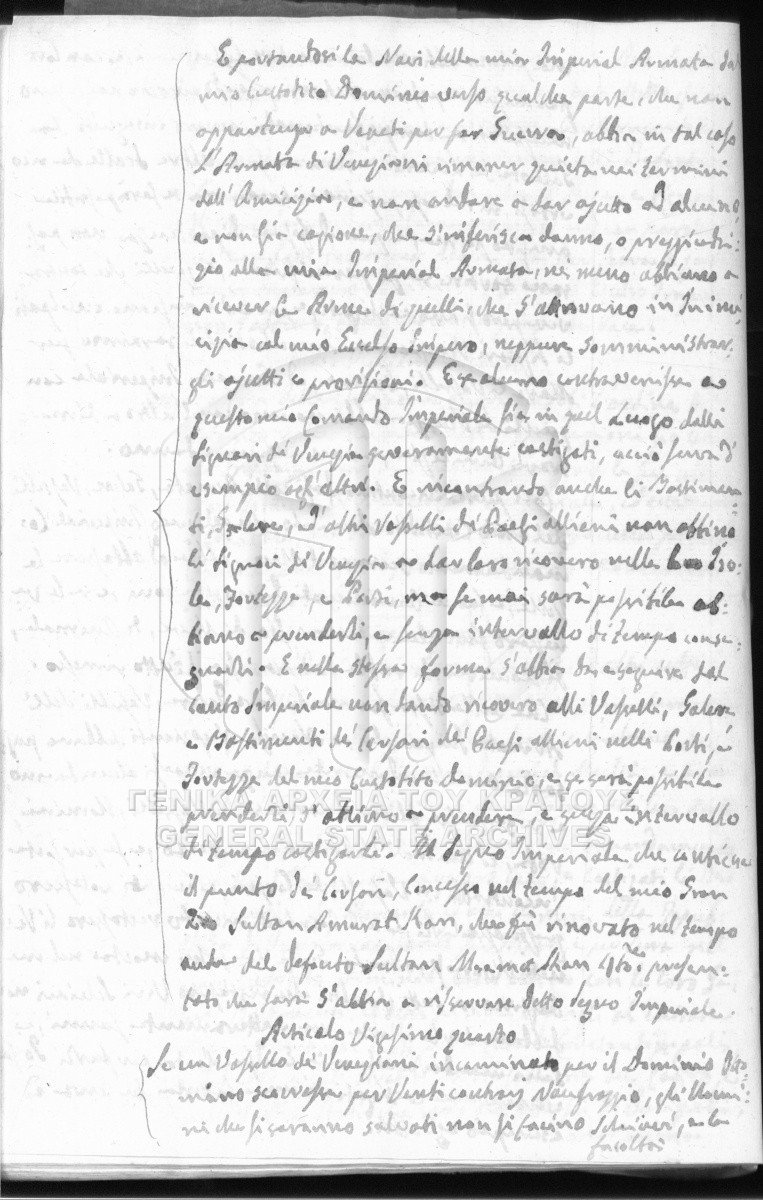 E portandosi le Navi della mia Imperial Armata dal
mio Custodito Dominio verso qualche parte, che non
appartenga a Veneti per far Guerra, abbia in tal caso
l'Armata di Veneziani rimaner quieta nei termini
dell'Amicizia, e non andare a dar ajutto ad alcuno,
e non sia cagione, che s'inferisca danno, o preggiudi-
zio alla mia Imperial Armata, nè meno abbiano a
ricever le Armi di quelli, che s'attrovano in Inimi-
cizia col mio Eccelso Impero, neppure somministrar-
gli ajutti e provisioni. E se alcuno contravenisse a
questo mio Comando Imperiale sia in quel Luogo dalli
Signori di Venezia severamente castigati, acciò serva d'
esempio agl'altri. E incontrando anche li Bastimen-
ti, Galere, ed altri Vasselli di Paesi allieni non abbino
li Signori di Venezia a dar loro ricovero nelle loro Iso-
le, Fortezze, e Porti, ma se mai sarà possibile ab-
biano a prenderli, e senza intervallo di tempo
E nella stessa forma s'abbia da eseguire dal
canto Imperiale non dando ricovero alli Vasselli, Galere
e Bastimenti dei Corsari dei Paesi allieni nelli Porti, e
Fortezze del mio Custodito Dominio, e se sarà possibile
prenderli, s'abbino a prendere, e senza intervallo
di tempo castigarli. Il Segno Imperiale che contiene
il punto dei Corsari, Concesso nel tempo del mio Gran
Zio Sultan Amurat Kan, che fù rinovato nel tempo
anche del defonto Sultan Han presen-
tato che sarà s'abbia a riservare detto Segno Imperiale.
Articolo Vigesimo quarto
Se un Vassello di Veneziani incaminato per il Dominio Otto-
mano scorresse per Venti contrarj Naufraggio, gli Uomi-
ni che si saranno salvati non si facino Schiavi, e le
facoltà
ΓΕΝΙΚΑ ΑΡΧΕΙΑ ΤΟΥ ΚΡΑΤΟΥΣ
GENERAL STATE ARCHIVES